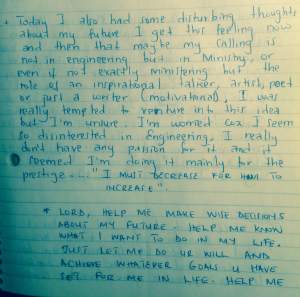 * Today I also had some disturbing thoughts
about my future. I get this feeling now
and then that maybe my calling is
not in engineering but in Ministry or
even if not exactly ministering but the
role of an inspirational talker, artist, poet
or just a writer (motivational). I was
really tempted to venture into this idea
but I'm unsure. I'm worried coz I seem
so disinterested in Engineering, I really
don't have any passion for it and it
seemed I'm doing it mainly for the
prestige...."I MUST DECREASE FOR HIM TO
INCREASE".
* LORD, HELP ME MAKE WISE DECISIONS
ABOUT MY FUTURE. HELP ME KNOW
WHAT I WANT TO DO IN MY LIFE.
JUST LET ME DO UR WILL AND
ACHIEVE WHATEVER GOALS U HAVE
SET FOR ME IN LIFE. HELP ME